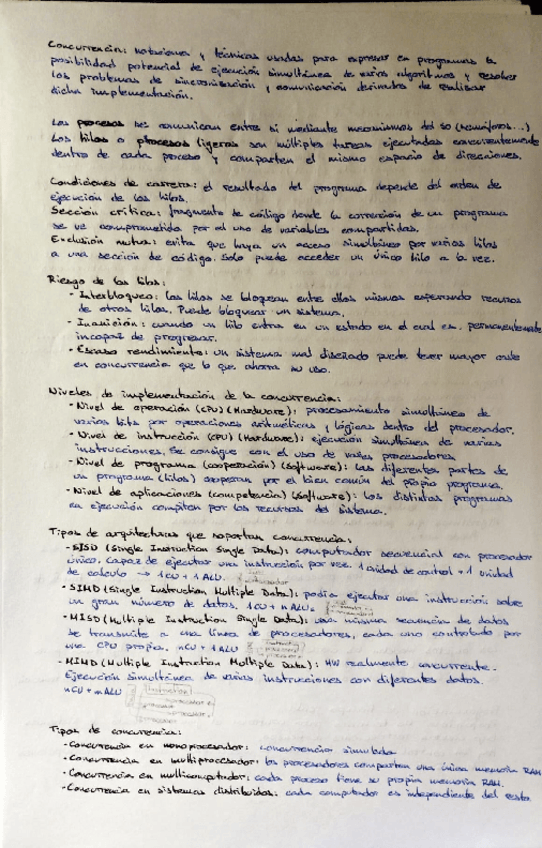 Concurrencia: notaciones y técnicas usadas para expresar en programas la
posibilidad potencial de ejecución simultánea de varios algoritmos y resolver
los problemas de sincronización y comunicación derivados de realizar
dicha implementación.
Los procesos se comunican entre si mediante mecanismos del SO (semáforos...)
Los hilos o procesos ligeros son múltiples tareas ejecutadas concurrentemente
dentro de cada proceso y comparten el mismo espacio de direcciones.
Condiciones de carrera: el resultado del programa depende del orden de
ejecución de los hilos.
Sección crítica: fragmento de código donde la corrección de un programa
se ve comprometida por el uso de variables compartidas.
Exclusión mutua: evita que haya un acceso simultáneo por varios hilos
a una sección de código. Solo puede acceder un único hilo a la vez.
Riesgo de los hilos:
- Interbloqueo: los hilos se bloquean entre ellos mismos esperando recursos
de otros hilos. Puede bloquear un sistema.
- Inanición: cuando un hilo entra en un estado en el cual es permanentemente
incapaz de progresar.
- Escaso rendimiento: un sistema mal diseñado puede tener mayor coste
en concurrencia que lo que ahorra su uso.
Niveles de implementación de la concurrencia:
- Nivel de operación (CPU) (Hardware): procesamiento simultáneo de
varios bits por operaciones aritméticas y lógicas dentro del procesador.
- Nivel de instrucción (CPU) (Hardware): ejecución simultánea de varias
instrucciones. Se consigue con el uso de varios procesadores
- Nivel de programa (cooperación) (Software): las diferentes partes de
un programa (hilos) cooperan por el bien común del propio programa.
- Nivel de aplicaciones (competencia) (Software): los distintos programas
en ejecución compiten por los recursos del sistema.
Tipos de arquitecturas que soportan concurrencia:
- SISD (Single Instruction Single Data): computador secuencial con procesador
único. Capaz de ejecutar una instrucción por vez. 1 unidad de control + 1 unidad
de cálculo → 1CU + 1 ALU.
- SIMD (Single Instruction Multiple Data): podía ejecutar una instrucción sobre
un gran número de datos. 1CU + nALU.
- MISD (Multiple Instruction Single Data): una misma secuencia de datos
se transmite a una línea de procesadores, cada uno controlado por
una CPU propia. nCU + 1 ALU
- MIMD (Multiple Instruction Multiple Data): HW realmente concurrente.
Ejecución simultánea de varias instrucciones con diferentes datos.
nCU + mALU
Tipos de concurrencia:
- Concurrencia en monoprocesador: concurrencia simulada
- Concurrencia en multiprocesador: los procesadores comparten una única memoria RAM
- Concurrencia en multicomputador: cada proceso tiene su propia memoria RAM.
- Concurrencia en sistemas distribuidos: cada computador es independiente del resto